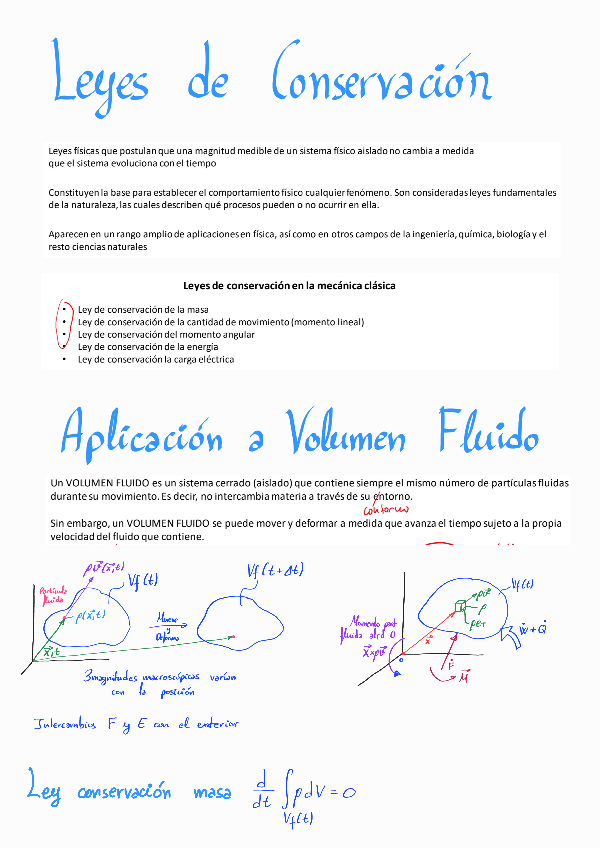 Leyes de Conservación
Leyes físicas que postulan que una magnitud medible de un sistema físico aislado no cambia a medida
que el sistema evoluciona con el tiempo
Constituyen la base para establecer el comportamiento físico cualquier fenómeno. Son consideradas leyes fundamentales
de la naturaleza, las cuales describen qué procesos pueden o no ocurrir en ella.
Aparecen en un rango amplio de aplicaciones en física, así como en otros campos de la ingeniería, química, biología y el
resto ciencias naturales
Leyes de conservación en la mecánica clásica
• Ley de conservación de la masa
• Ley de conservación de la cantidad de movimiento (momento lineal)
• Ley de conservación del momento angular
• Ley de conservación de la energía
• Ley de conservación la carga eléctrica
Aplicación a Volumen Fluido
Un VOLUMEN FLUIDO es un sistema cerrado (aislado) que contiene siempre el mismo número de partículas fluidas
durante su movimiento. Es decir, no intercambia materia a través de su entorno.
contorno
Sin embargo, un VOLUMEN FLUIDO se puede mover y deformar a medida que avanza el tiempo sujeto a la propia
velocidad del fluido que contiene.
ρv⃗(x⃗,t)
Partícula
fluida
Vf(t)
ρ(x⃗,t)
x⃗,t
Mueve
y
Deforma
Vf(t+Δt)
Vf(t)
ρv⃗
ρ
ρeT
Ẇ+Q̇
Momento part
fluida alrd O
x⃗×ρv⃗
x⃗
O
F⃗
M⃗
3 magnitudes macroscópicas varían
con la posición
Intercambios F y E con el exterior
Ley conservación masa d/dt ∫Vf(t) ρdV = 0